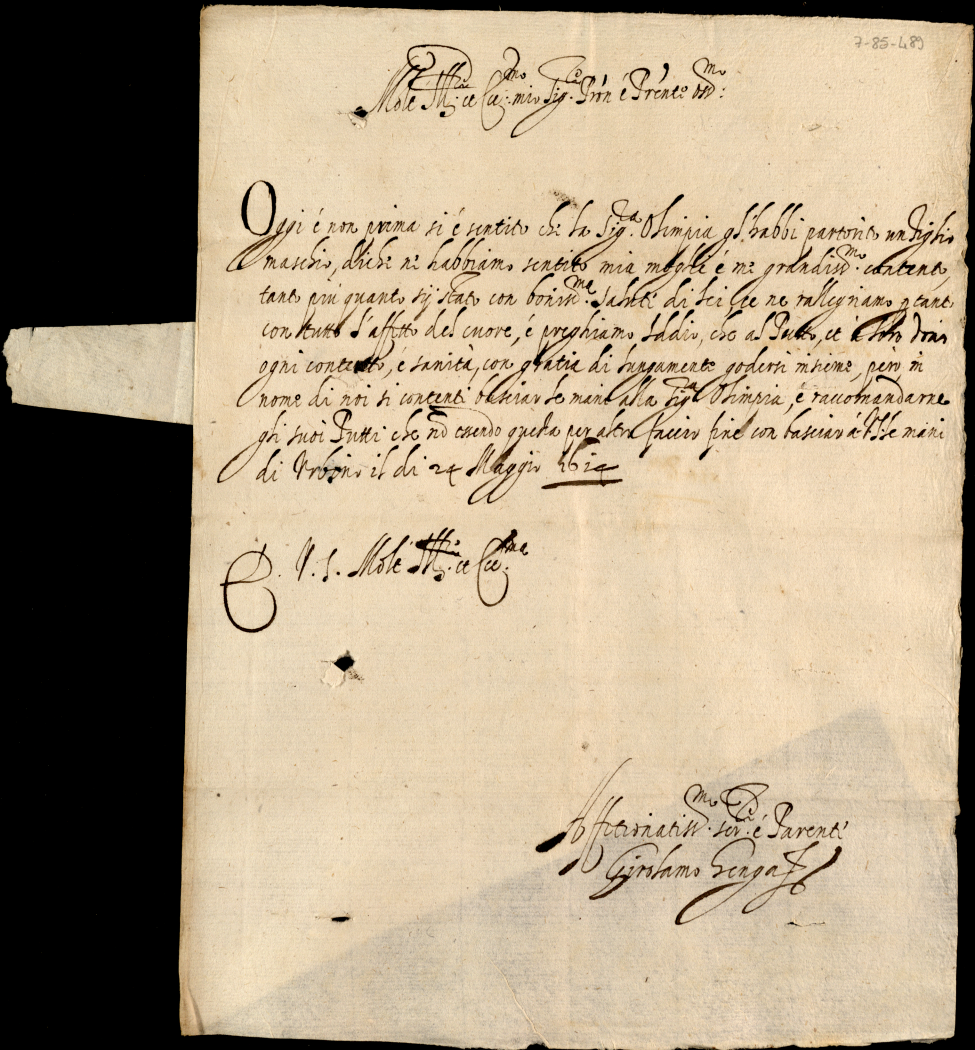 7-85-489
Molt' Ill.re et Ecc.mo mio Sig.re Pròn é Prènte oss.mo:
Oggi é non prima si é sentito che la Sig.ra Olimpia gl'habbi partorito un figlio
maschio, diche ne habbiamo sentito mia moglie é me grandiss.mo contento,
tanto piú quanto sij stato con boniss.ma salute di lei, ce ne rallegriamo p tanto
con tutto l'affetto del cuore, é preghiamo Iddio, che al Putto, et à loro doni
ogni contento, e sanità, con gratia di lungamente godersi insieme, però, in
nome di noi si contenti basciar le mani alla Sig.ra Olimpia, e raccomandarne
gli suoi Putti che nō essendo questa per altro faccio fine con basciar à V.S. le mani
di Urbino il di 24 Maggio 1614
D. V. S. Molt' Ill.re et Ecc.ma
Affetionatiss.mo ser.re é Parente
Girolamo Genga